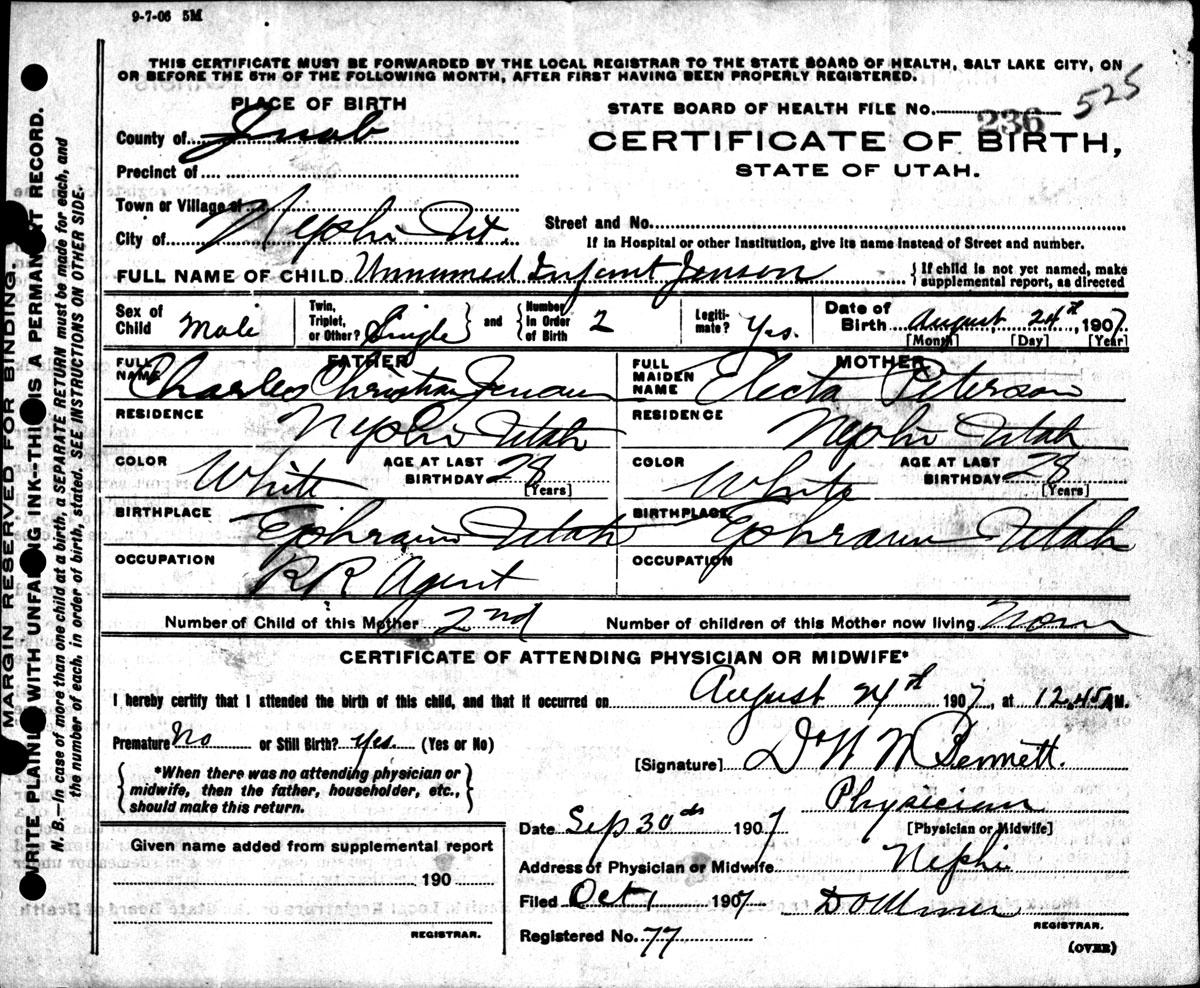 9-7-06 5M
THIS CERTIFICATE MUST BE FORWARDED BY THE LOCAL REGISTRAR TO THE STATE BOARD OF HEALTH, SALT LAKE CITY, ON
OR BEFORE THE 5TH OF THE FOLLOWING MONTH, AFTER FIRST HAVING BEEN PROPERLY REGISTERED.
PLACE OF BIRTH
STATE BOARD OF HEALTH FILE NO. 236 525
County of Juab
CERTIFICATE OF BIRTH,
Precinct of
STATE OF UTAH.
Town or Village of
Street and No.
City of Nephi Ut.
If in Hospital or other Institution, give its name instead of Street and number.
FULL NAME OF CHILD Unnamed Infant Jenson
{If child is not yet named, make
supplemental report, as directed
Sex of Child Male
Twin, Triplet, or Other? Single } and { Number in Order of Birth 2
Legitimate? Yes.
Date of Birth August 24th, 1907
[Month] [Day] [Year]
FATHER
FULL NAME Charles Christian Jensen
MOTHER
FULL MAIDEN NAME Electa Peterson
RESIDENCE Nephi Utah
RESIDENCE Nephi Utah
COLOR White AGE AT LAST BIRTHDAY 28 [Years]
COLOR White AGE AT LAST BIRTHDAY 28 [Years]
BIRTHPLACE Ephraim Utah
BIRTHPLACE Ephraim Utah
OCCUPATION RR Agent
OCCUPATION
Number of Child of this Mother 2nd
Number of children of this Mother now living None
CERTIFICATE OF ATTENDING PHYSICIAN OR MIDWIFE*
I hereby certify that I attended the birth of this child, and that it occurred on August 24th 1907, at 12.45 M.
Premature No or Still Birth? Yes. (Yes or No)
[Signature] Dr W W Pennett.
{*When there was no attending physician or
midwife, then the father, householder, etc.,
should make this return.}
Physician
[Physician or Midwife]
Date Sep 30 1907
Given name added from supplemental report
Address of Physician or Midwife Nephi
190
Filed Oct 1 1907
REGISTRAR.
REGISTRAR.
Registered No. 77
(OVER)
MARGIN RESERVED FOR BINDING.
WRITE PLAINLY WITH UNFADING INK--THIS IS A PERMANENT RECORD.
N. B.—In case of more than one child at a birth, a SEPARATE RETURN must be made for each, and
the number of each, in order of birth, stated. SEE INSTRUCTIONS ON OTHER SIDE.